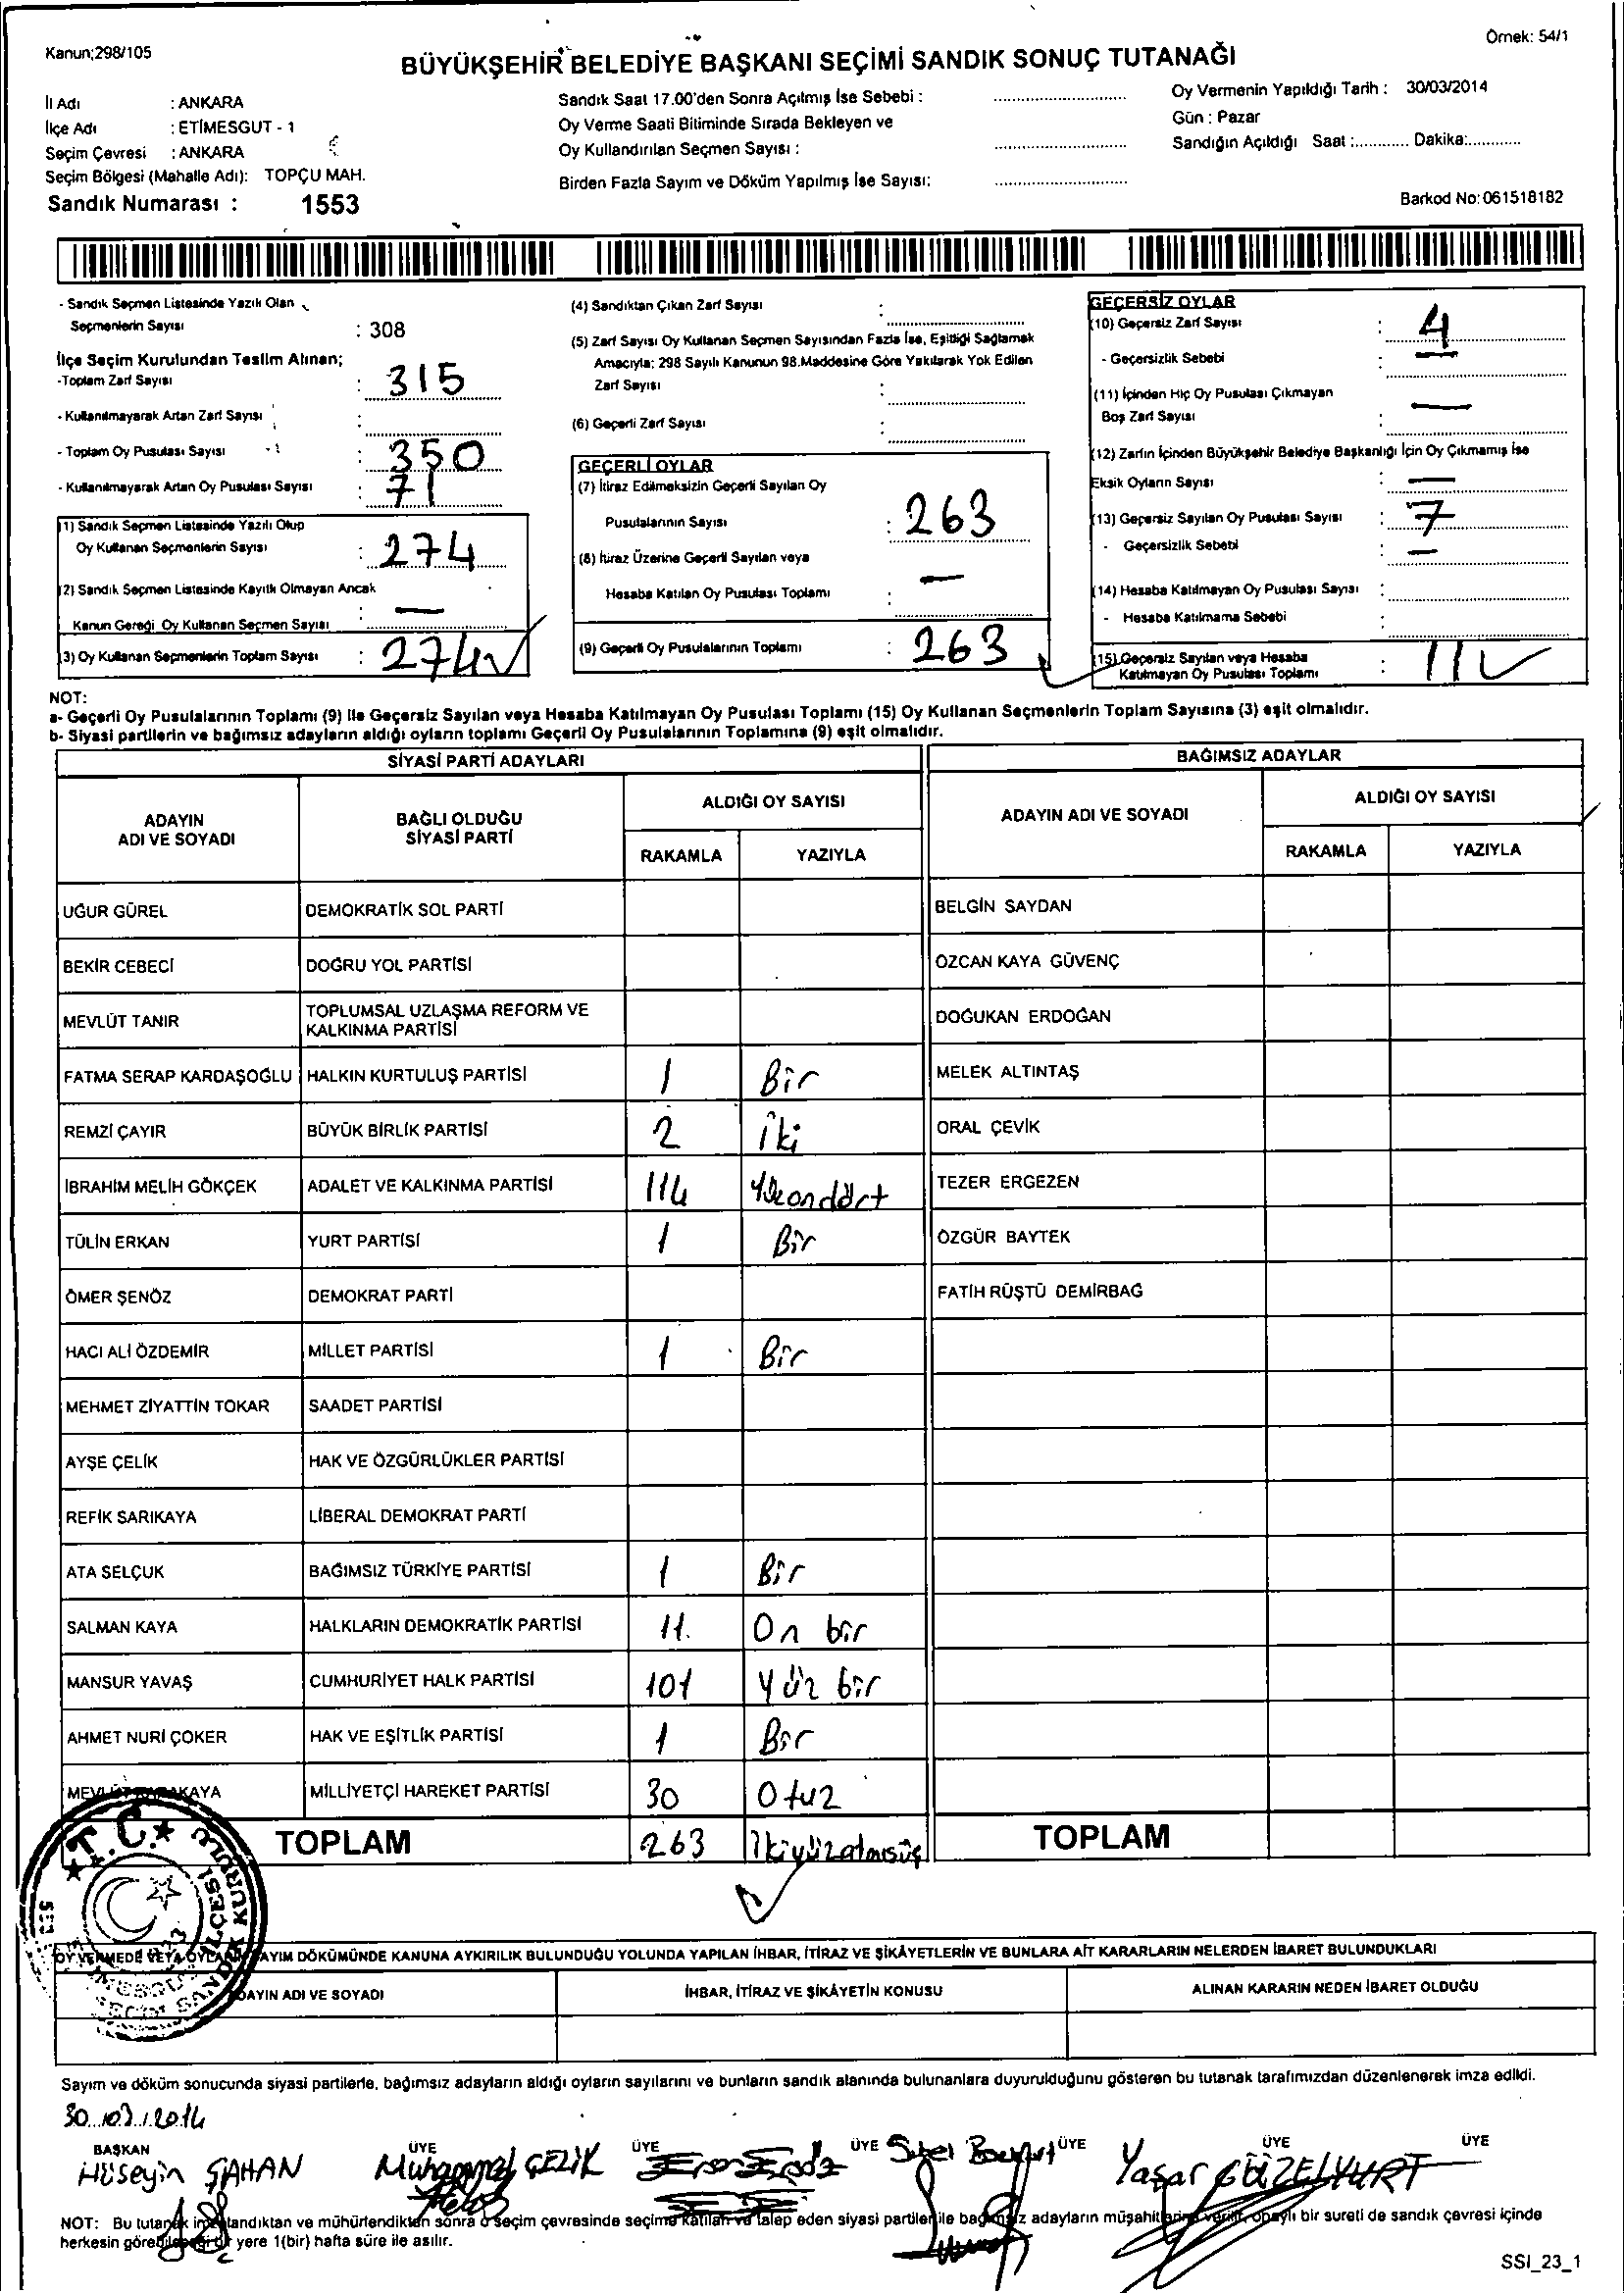 Kanun;298/105
Örnek: 54/1
BÜYÜKŞEHİR BELEDİYE BAŞKANI SEÇİMİ SANDIK SONUÇ TUTANAĞI
İl Adı : ANKARA
İlçe Adı : ETİMESGUT - 1
Seçim Çevresi : ANKARA
Seçim Bölgesi (Mahalle Adı): TOPÇU MAH.
Sandık Numarası : 1553
Sandık Saat 17.00'den Sonra Açılmış İse Sebebi :
Oy Verme Saati Bitiminde Sırada Bekleyen ve
Oy Kullandırılan Seçmen Sayısı :
Birden Fazla Sayım ve Döküm Yapılmış İse Sayısı:
Oy Vermenin Yapıldığı Tarih : 30/03/2014
Gün : Pazar
Sandığın Açıldığı Saat :............ Dakika:............
Barkod No:061518182
- Sandık Seçmen Listesinde Yazılı Olan
Seçmenlerin Sayısı : 308
İlçe Seçim Kurulundan Teslim Alınan;
-Toplam Zarf Sayısı : 315
- Kullanılmayarak Artan Zarf Sayısı :
- Toplam Oy Pusulası Sayısı : 350
- Kullanılmayarak Artan Oy Pusulası Sayısı : 71
(1) Sandık Seçmen Listesinde Yazılı Olup
Oy Kullanan Seçmenlerin Sayısı : 274
(2) Sandık Seçmen Listesinde Kayıtlı Olmayan Ancak
Kanun Gereği Oy Kullanan Seçmen Sayısı : —
(3) Oy Kullanan Seçmenlerin Toplam Sayısı : 274
(4) Sandıktan Çıkan Zarf Sayısı :
(5) Zarf Sayısı Oy Kullanan Seçmen Sayısından Fazla İse, Eşitliği Sağlamak
Amacıyla; 298 Sayılı Kanunun 98.Maddesine Göre Yakılarak Yok Edilen
Zarf Sayısı :
(6) Geçerli Zarf Sayısı :
GEÇERLİ OYLAR
(7) İtiraz Edilmeksizin Geçerli Sayılan Oy
Pusulalarının Sayısı : 263
(8) İtiraz Üzerine Geçerli Sayılan veya
Hesaba Katılan Oy Pusulası Toplamı : —
(9) Geçerli Oy Pusulalarının Toplamı : 263
GEÇERSİZ OYLAR
(10) Geçersiz Zarf Sayısı : 4
- Geçersizlik Sebebi : —
(11) İçinden Hiç Oy Pusulası Çıkmayan
Boş Zarf Sayısı : —
(12) Zarfın İçinden Büyükşehir Belediye Başkanlığı İçin Oy Çıkmamış İse
Eksik Oyların Sayısı : —
(13) Geçersiz Sayılan Oy Pusulası Sayısı : 7
- Geçersizlik Sebebi : —
(14) Hesaba Katılmayan Oy Pusulası Sayısı :
- Hesaba Katılmama Sebebi :
(15) Geçersiz Sayılan veya Hesaba
Katılmayan Oy Pusulası Toplamı : 11
NOT:
a- Geçerli Oy Pusulalarının Toplamı (9) ile Geçersiz Sayılan veya Hesaba Katılmayan Oy Pusulası Toplamı (15) Oy Kullanan Seçmenlerin Toplam Sayısına (3) eşit olmalıdır.
b- Siyasi partilerin ve bağımsız adayların aldığı oyların toplamı Geçerli Oy Pusulalarının Toplamına (9) eşit olmalıdır.
SİYASİ PARTİ ADAYLARI
BAĞIMSIZ ADAYLAR
ADAYIN ADI VE SOYADI
BAĞLI OLDUĞU SİYASİ PARTİ
ALDIĞI OY SAYISI
RAKAMLA YAZIYLA
ADAYIN ADI VE SOYADI
ALDIĞI OY SAYISI
RAKAMLA YAZIYLA
UĞUR GÜREL DEMOKRATİK SOL PARTİ BELGİN SAYDAN
BEKİR CEBECİ DOĞRU YOL PARTİSİ ÖZCAN KAYA GÜVENÇ
MEVLÜT TANIR TOPLUMSAL UZLAŞMA REFORM VE KALKINMA PARTİSİ DOĞUKAN ERDOĞAN
FATMA SERAP KARDAŞOĞLU HALKIN KURTULUŞ PARTİSİ 1 Bir MELEK ALTINTAŞ
REMZİ ÇAYIR BÜYÜK BİRLİK PARTİSİ 2 iki ORAL ÇEVİK
İBRAHİM MELİH GÖKÇEK ADALET VE KALKINMA PARTİSİ 114 Yüzondört TEZER ERGEZEN
TÜLİN ERKAN YURT PARTİSİ 1 Bir ÖZGÜR BAYTEK
ÖMER ŞENÖZ DEMOKRAT PARTİ FATİH RÜŞTÜ DEMİRBAĞ
HACI ALİ ÖZDEMİR MİLLET PARTİSİ 1 Bir
MEHMET ZİYATTİN TOKAR SAADET PARTİSİ
AYŞE ÇELİK HAK VE ÖZGÜRLÜKLER PARTİSİ
REFİK SARIKAYA LİBERAL DEMOKRAT PARTİ
ATA SELÇUK BAĞIMSIZ TÜRKİYE PARTİSİ 1 Bir
SALMAN KAYA HALKLARIN DEMOKRATİK PARTİSİ 11 On bir
MANSUR YAVAŞ CUMHURİYET HALK PARTİSİ 101 Yüz bir
AHMET NURİ ÇOKER HAK VE EŞİTLİK PARTİSİ 1 Bir
MEVLÜT KARAKAYA MİLLİYETÇİ HAREKET PARTİSİ 30 Otuz
TOPLAM 263 İkiyüzatmışüç TOPLAM
T.C.
OY VERMEDE VEYA OYLARIN SAYIM DÖKÜMÜNDE KANUNA AYKIRILIK BULUNDUĞU YOLUNDA YAPILAN İHBAR, İTİRAZ VE ŞİKÂYETLERİN VE BUNLARA AİT KARARLARIN NELERDEN İBARET BULUNDUKLARI
ADAYIN ADI VE SOYADI İHBAR, İTİRAZ VE ŞİKÂYETİN KONUSU ALINAN KARARIN NEDEN İBARET OLDUĞU
Sayım ve döküm sonucunda siyasi partilerle, bağımsız adayların aldığı oyların sayılarını ve bunların sandık alanında bulunanlara duyurulduğunu gösteren bu tutanak tarafımızdan düzenlenerek imza edildi.
30.../03../.2014
BAŞKAN ÜYE ÜYE ÜYE ÜYE ÜYE ÜYE
Hüseyin ŞAHAN Muhammed ÇELİK Yaşar GÜZELYURT
NOT: Bu tutanak imzalandıktan ve mühürlendikten sonra o seçim çevresinde seçime katılan ve talep eden siyasi partiler ile bağımsız adayların müşahitlerine verilir, onaylı bir sureti de sandık çevresi içinde
herkesin görebileceği bir yere 1(bir) hafta süre ile asılır.
SSI_23_1